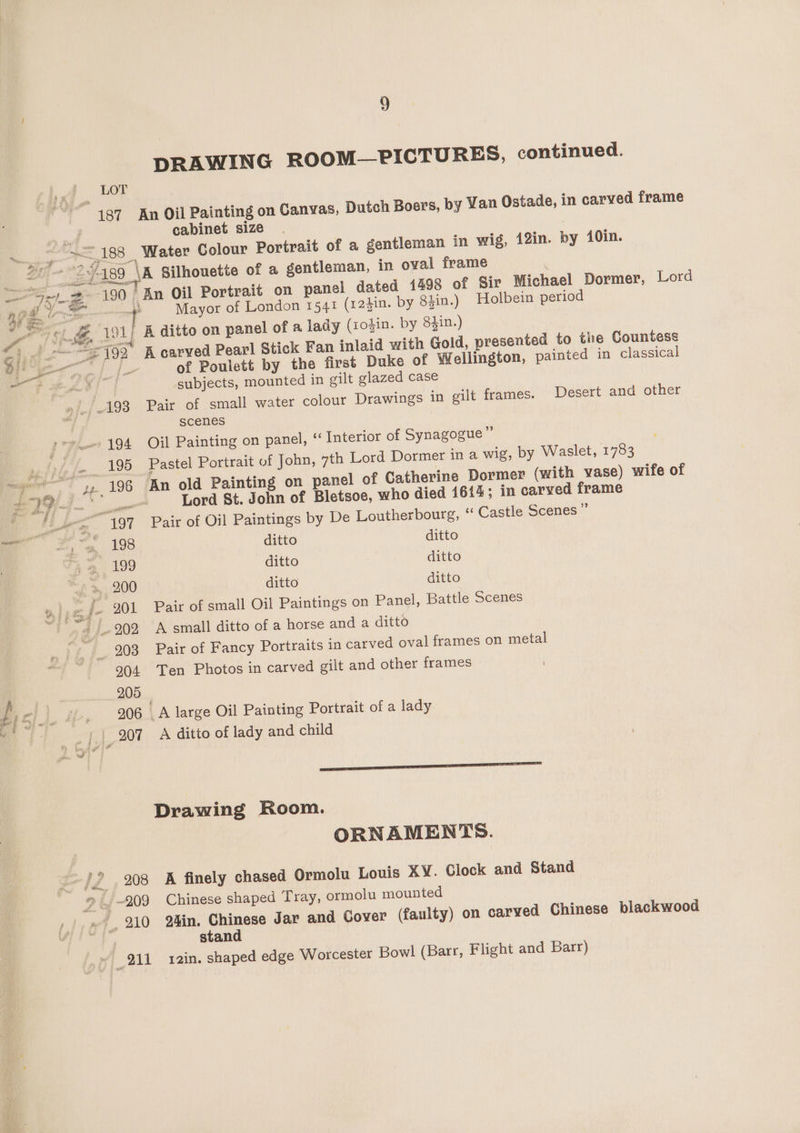 9
DRAWING ROOM—PICTURES, continued.
LOT
187 An Oil Painting on Canvas, Dutch Boers, by Van Ostade, in carved frame
cabinet size
188 Water Colour Portrait of a gentleman in wig, 12in. by 10in.
189 A Silhouette of a gentleman, in oval frame
190 An Oil Portrait on panel dated 1498 of Sir Michael Dormer, Lord
Mayor of London 1541 (12½in. by 8½in.) Holbein period
191 A ditto on panel of a lady (10½in. by 8½in.)
192 A carved Pearl Stick Fan inlaid with Gold, presented to the Countess
of Poulett by the first Duke of Wellington, painted in classical
subjects, mounted in gilt glazed case
193 Pair of small water colour Drawings in gilt frames. Desert and other
scenes
194 Oil Painting on panel, “Interior of Synagogue”
195 Pastel Portrait of John, 7th Lord Dormer in a wig, by Waslet, 1783
196 An old Painting on panel of Catherine Dormer (with vase) wife of
Lord St. John of Bletsoe, who died 1614; in carved frame
197 Pair of Oil Paintings by De Loutherbourg, “Castle Scenes”
198 ditto ditto
199 ditto ditto
200 ditto ditto
201 Pair of small Oil Paintings on Panel, Battle Scenes
202 A small ditto of a horse and a ditto
203 Pair of Fancy Portraits in carved oval frames on metal
204 Ten Photos in carved gilt and other frames
205
206 A large Oil Painting Portrait of a lady
207 A ditto of lady and child
Drawing Room.
ORNAMENTS.
208 A finely chased Ormolu Louis XV. Clock and Stand
209 Chinese shaped Tray, ormolu mounted
210 24in. Chinese Jar and Cover (faulty) on carved Chinese blackwood
stand
211 12in. shaped edge Worcester Bowl (Barr, Flight and Barr)